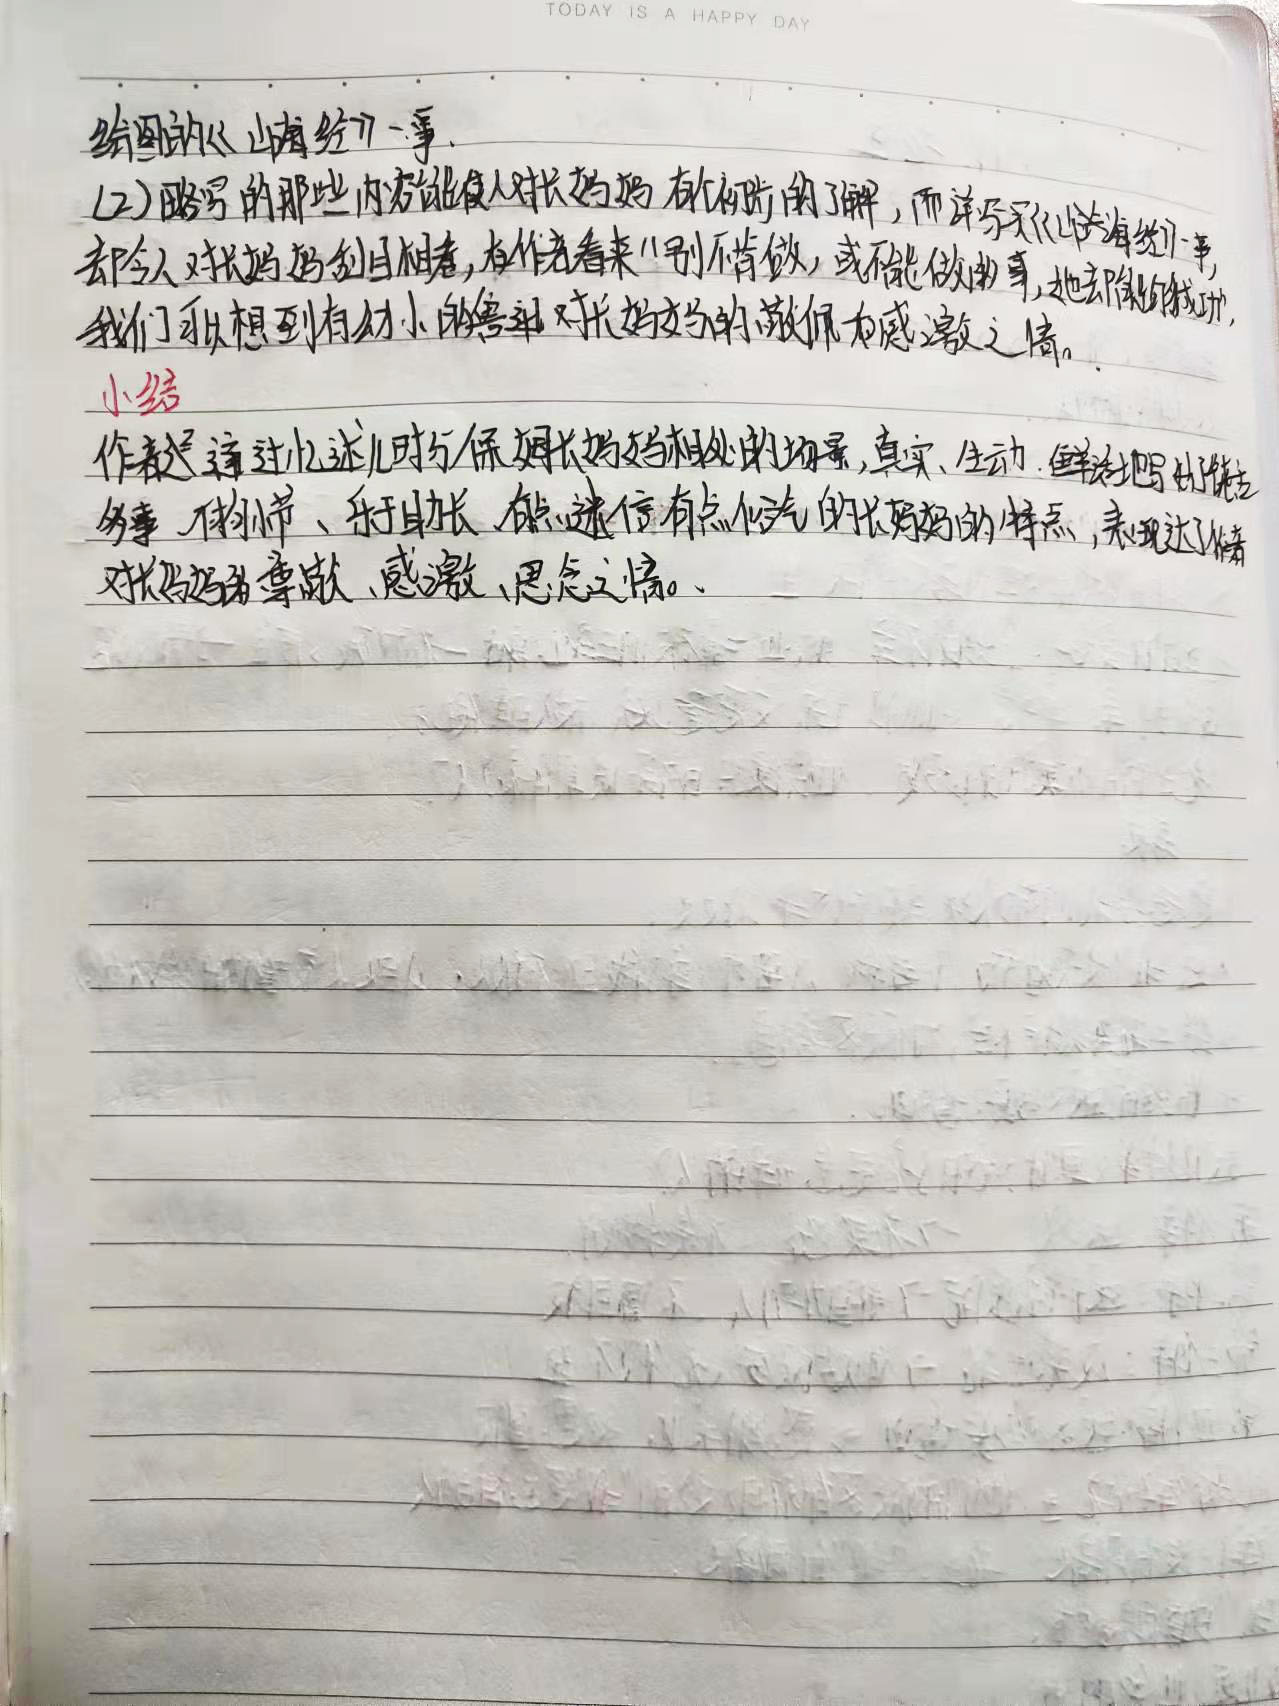 TODAY IS A HAPPY DAY
绘图的《山海经》一事.
(2)略写的那些内容能使人对长妈妈有个初步的了解，而详写买《山海经》一事，
却令人对长妈妈刮目相看，在作者看来"别不肯做，或不能做的事，她却能成功，
我们可以想到有幼小的鲁迅对长妈妈的敬佩和感激之情。
小结
作者通过忆述儿时与保姆长妈妈相处的场景，真实、生动.鲜活地写出了
多事 不拘小节、乐于助长 有点迷信有点俗气的长妈妈的特点，表达了作者
对长妈妈的尊敬、感激、思念之情。